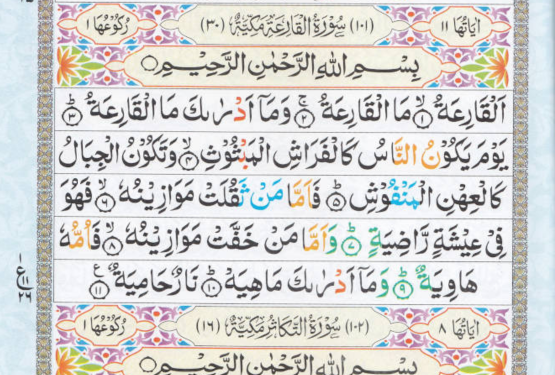 اٰیَاتُهَا ١١ (١٠١) سُوْرَةُ الْقَارِعَةِ مَكِّیَّةٌ (٣٠) رُكُوْعُهَا ١
بِسْمِ اللّٰهِ الرَّحْمٰنِ الرَّحِیْمِ
اَلْقَارِعَةُ ۙ‏﴿١﴾ مَا الْقَارِعَةُ ۚ‏﴿٢﴾ وَمَاۤ اَدْرٰىكَ مَا الْقَارِعَةُ ؕ‏﴿٣﴾
یَوْمَ یَكُوْنُ النَّاسُ كَالْفَرَاشِ الْمَبْثُوْثِ ۙ‏﴿٤﴾ وَتَكُوْنُ الْجِبَالُ
كَالْعِهْنِ الْمَنْفُوْشِ ؕ‏﴿٥﴾ فَاَمَّا مَنْ ثَقُلَتْ مَوَازِیْنُهٗ ۙ‏﴿٦﴾ فَهُوَ
فِیْ عِیْشَةٍ رَّاضِیَةٍ ؕ‏﴿٧﴾ وَاَمَّا مَنْ خَفَّتْ مَوَازِیْنُهٗ ۙ‏﴿٨﴾ فَاُمُّهٗ
هَاوِیَةٌ ؕ‏﴿٩﴾ وَمَاۤ اَدْرٰىكَ مَا هِیَهْ ؕ‏﴿١٠﴾ نَارٌ حَامِیَةٌ ‏﴿١١﴾
١
ع
١١
٢٦
اٰیَاتُهَا ٨ (١٠٢) سُوْرَةُ التَّكَاثُرِ مَكِّیَّةٌ (١٦) رُكُوْعُهَا ١
بِسْمِ اللّٰهِ الرَّحْمٰنِ الرَّحِیْمِ